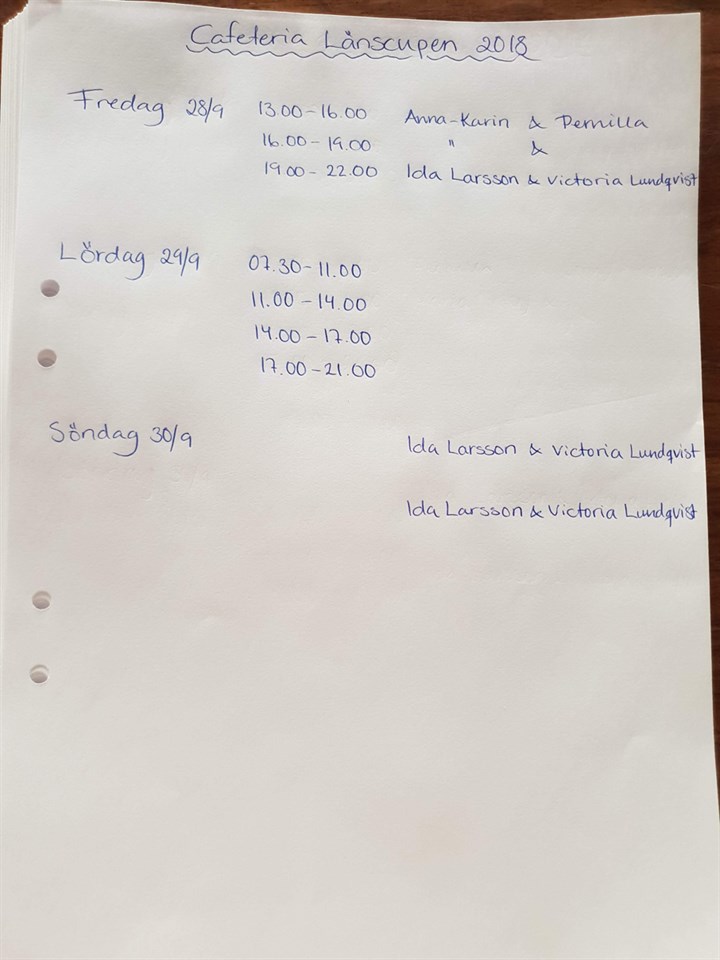 Cafeteria Länscupen 2018
Fredag 28/9 13.00-16.00 Anna-Karin & Pernilla
16.00-19.00 " &
19.00-22.00 Ida Larsson & Victoria Lundqvist
Lördag 29/9 07.30-11.00
11.00-14.00
14.00-17.00
17.00-21.00
Söndag 30/9 Ida Larsson & Victoria Lundqvist
Ida Larsson & Victoria Lundqvist